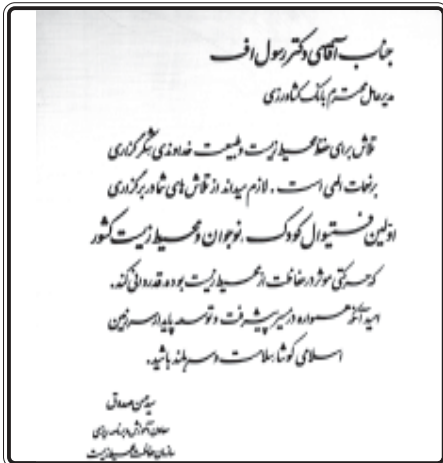 جناب آقای دکتر رسول اف
مدیرعامل محترم بانک کشاورزی
تلاش برای حفظ محیط زیست و طبیعت خداوندی شکرگزاری
برنعمات الهی است. لازم میداند از تلاش های شما در برگزاری
اولین فستیوال کودک، نوجوان و محیط زیست کشور
که حرکتی موثر در حفاظت از محیط زیست بوده، قدردانی کند.
امید آنکه همواره در مسیر پیشرفت و توسعه پایدار سرزمین
اسلامی کوشا، سلامت و سربلند باشید.
سید محسن صدوق
معاون آموزش و برنامه ریزی
سازمان حفاظت محیط زیست